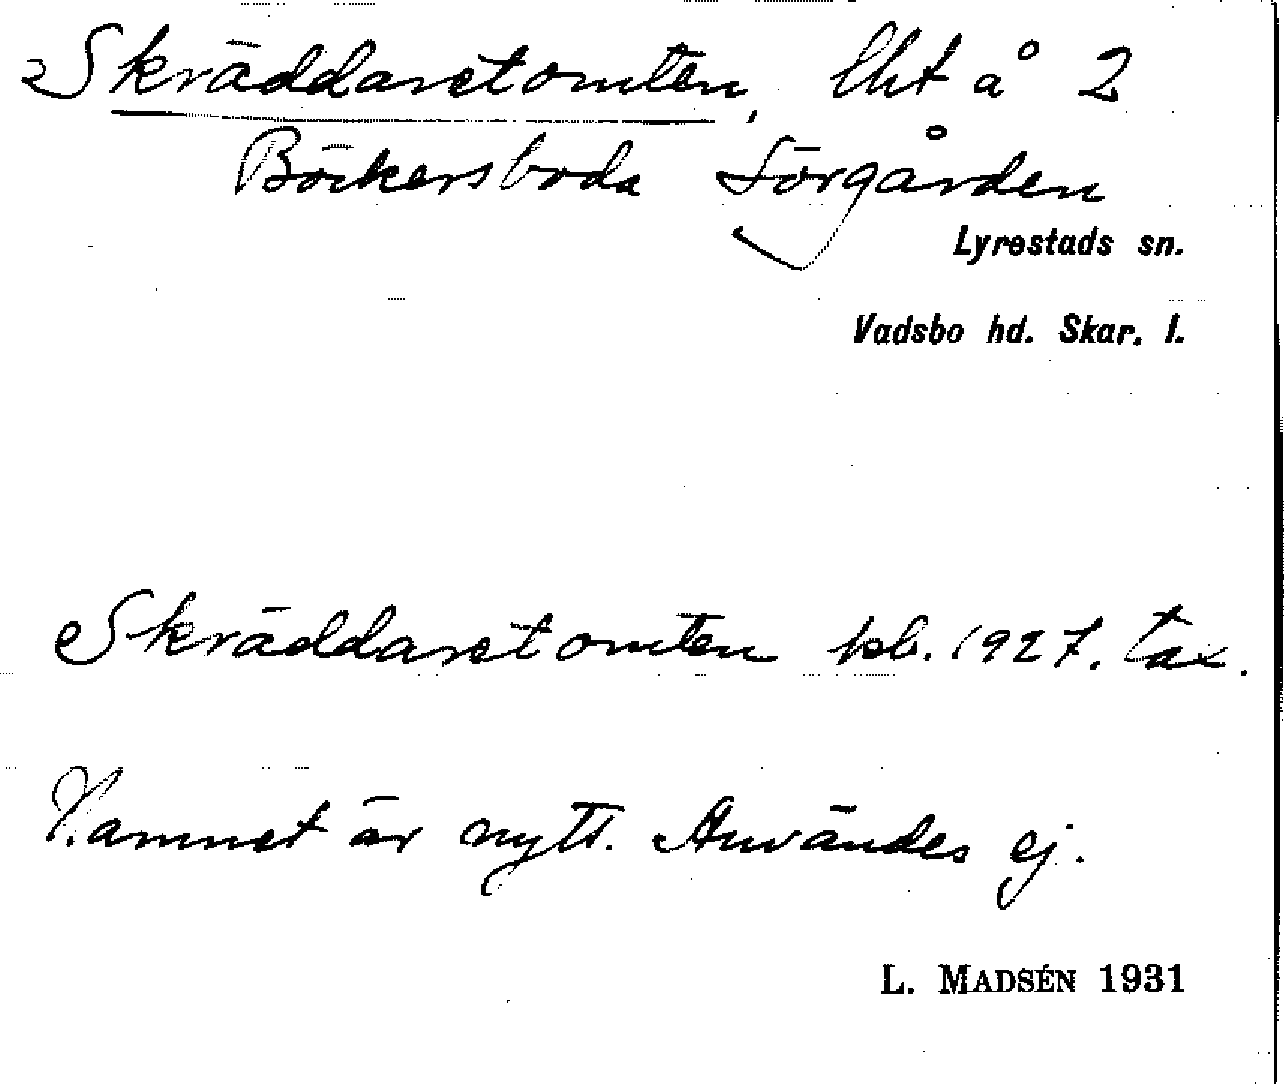 Skräddaretomten, lht å 2
Böckersboda Sörgården
Lyrestads sn.
Vadsbo hd. Skar. l.
Skräddaretomten kb. 1927. tax.
Namnet är nytt. Användes ej.
L. MADSÉN 1931